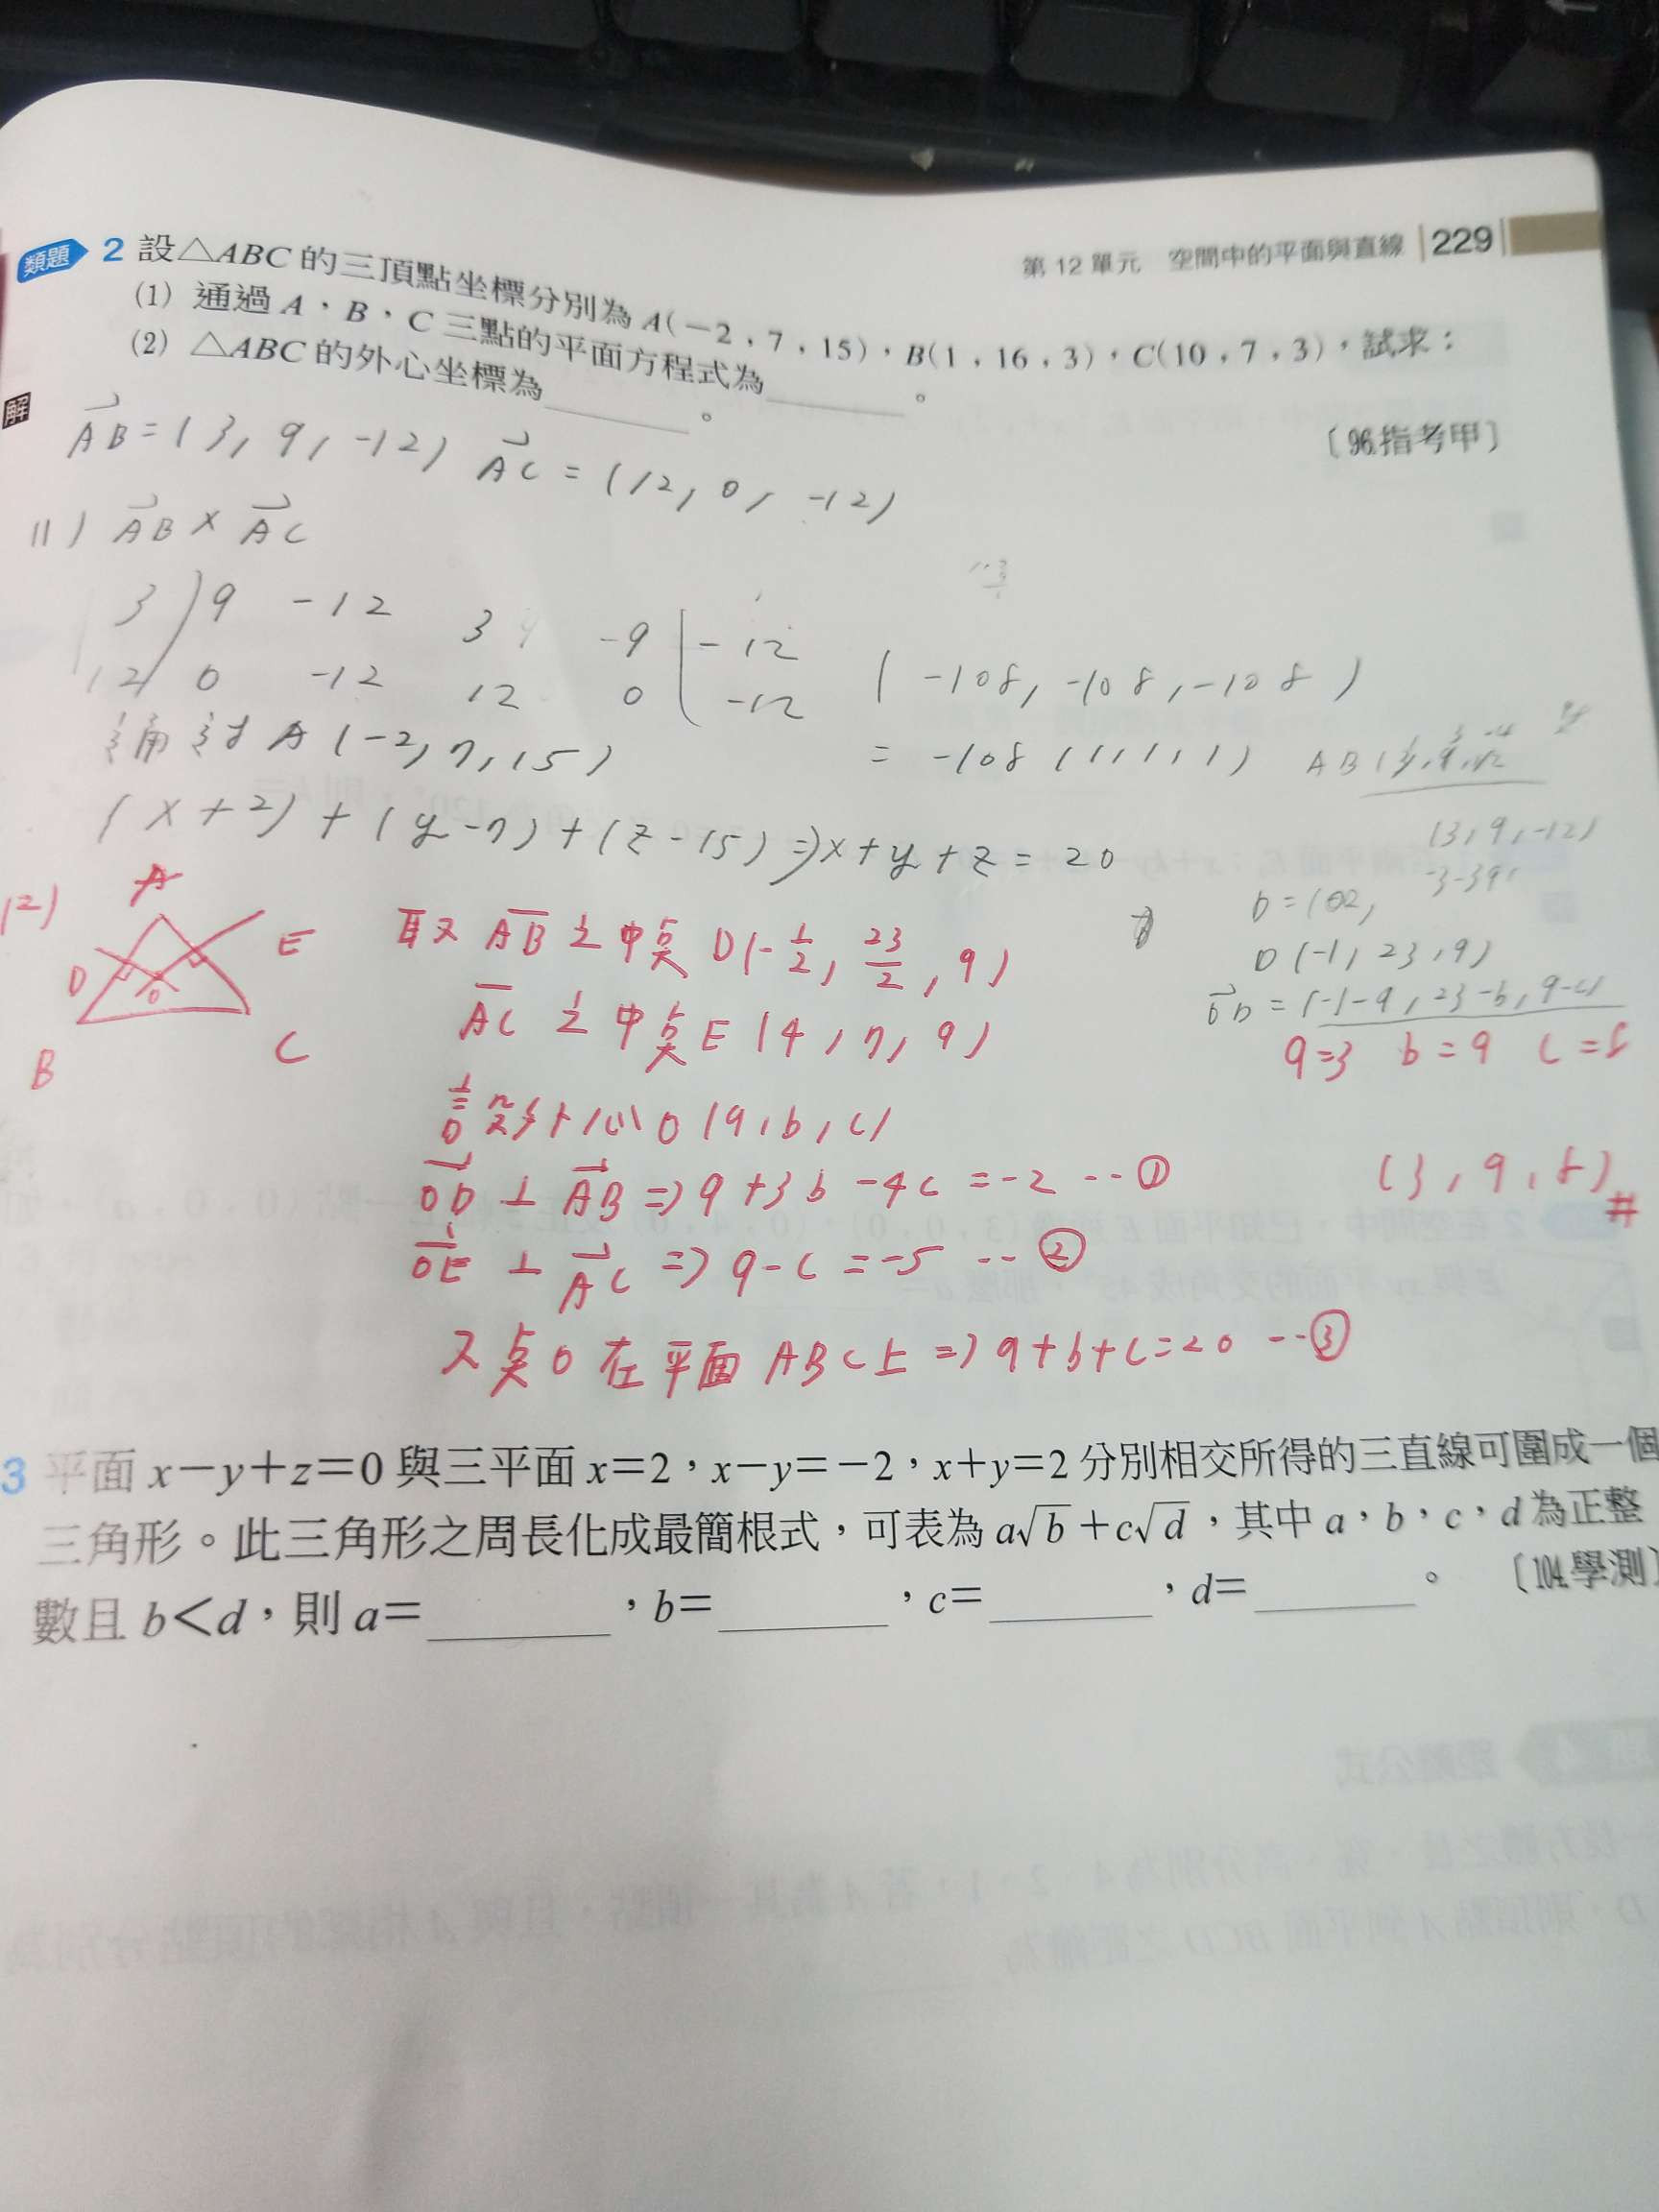 第 12 單元 空間中的平面與直線 229
類題 2 設△ABC 的三頂點坐標分別為 A(−2,7,15),B(1,16,3),C(10,7,3),試求:
(1) 通過 A、B、C 三點的平面方程式為________。
(2) △ABC 的外心坐標為________。
〔96.指考甲〕
解 AB=(3, 9, -12) AC=(12, 0, -12)
(1) AB × AC
3 9 -12 3 -9 -12
12 0 -12 12 0 -12
(-108, -108, -108)
= -108 (1, 1, 1)
通過 A(-2, 7, 15)
(x+2)+(y-7)+(z-15) ⇒ x+y+z=20
(3, 9, -12)
D(-1, 23, 9)
OD = (-1-a, 23-b, 9-c)
a=3 b=9 c=8
(3, 9, 8)#
(2) A
D O E
B C
取 AB 之中奌 D(-1/2, 23/2, 9)
AC 之中奌 E(4, 7, 9)
設外心 O(a, b, c)
OD ⊥ AB ⇒ a+3b-4c=-2 --①
OE ⊥ AC ⇒ a-c=-5 --②
又奌O在平面ABC上 ⇒ a+b+c=20 --③
3 平面 x−y+z=0 與三平面 x=2,x−y=−2,x+y=2 分別相交所得的三直線可圍成一個
三角形。此三角形之周長化成最簡根式,可表為 a√b+c√d,其中 a,b,c,d 為正整
數且 b<d,則 a=________,b=________,c=________,d=________。 〔104.學測〕